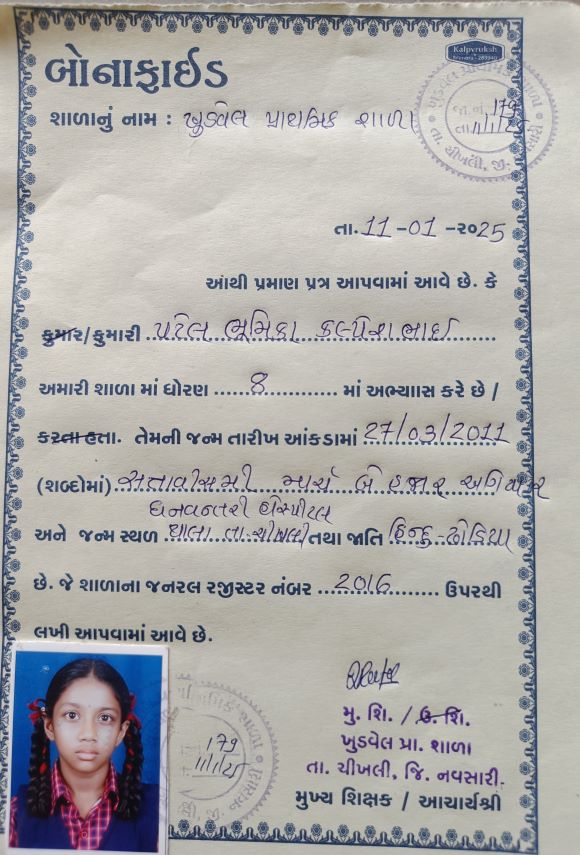 Kalpvruksh
બોનાફાઈડ
શાળાનું નામ : ખુડવેલ પ્રાથમિક શાળા
ખુડવેલ પ્રાથમિક શાળા
જા.નં. 179
તા. 11/1/25
તા. ચીખલી, જી. નવસારી
તા. 11 -01 -૨૦25
આથી પ્રમાણ પત્ર આપવામાં આવે છે. કે
કુમાર/કુમારી પટેલ ભૂમિકા કલ્પેશભાઈ
અમારી શાળા માં ધોરણ 8 માં અભ્યાસ કરે છે /
કરતા હતા. તેમની જન્મ તારીખ આંકડામાં 27/03/2011
(શબ્દોમાં) સત્તાવીસમી માર્ચ બે હજાર અગિયાર
ધનવન્તરી હોસ્પીટલ
અને જન્મ સ્થળ થાલા તા.ચીખલી તથા જાતિ હિન્દુ-ઢોડિયા
છે. જે શાળાના જનરલ રજીસ્ટર નંબર 2016 ઉપરથી
લખી આપવામાં આવે છે.
મુ. શિ. / ઉ. શિ.
ખુડવેલ પ્રા. શાળા
તા. ચીખલી, જિ. નવસારી.
મુખ્ય શિક્ષક / આચાર્યશ્રી
179
11/1/25